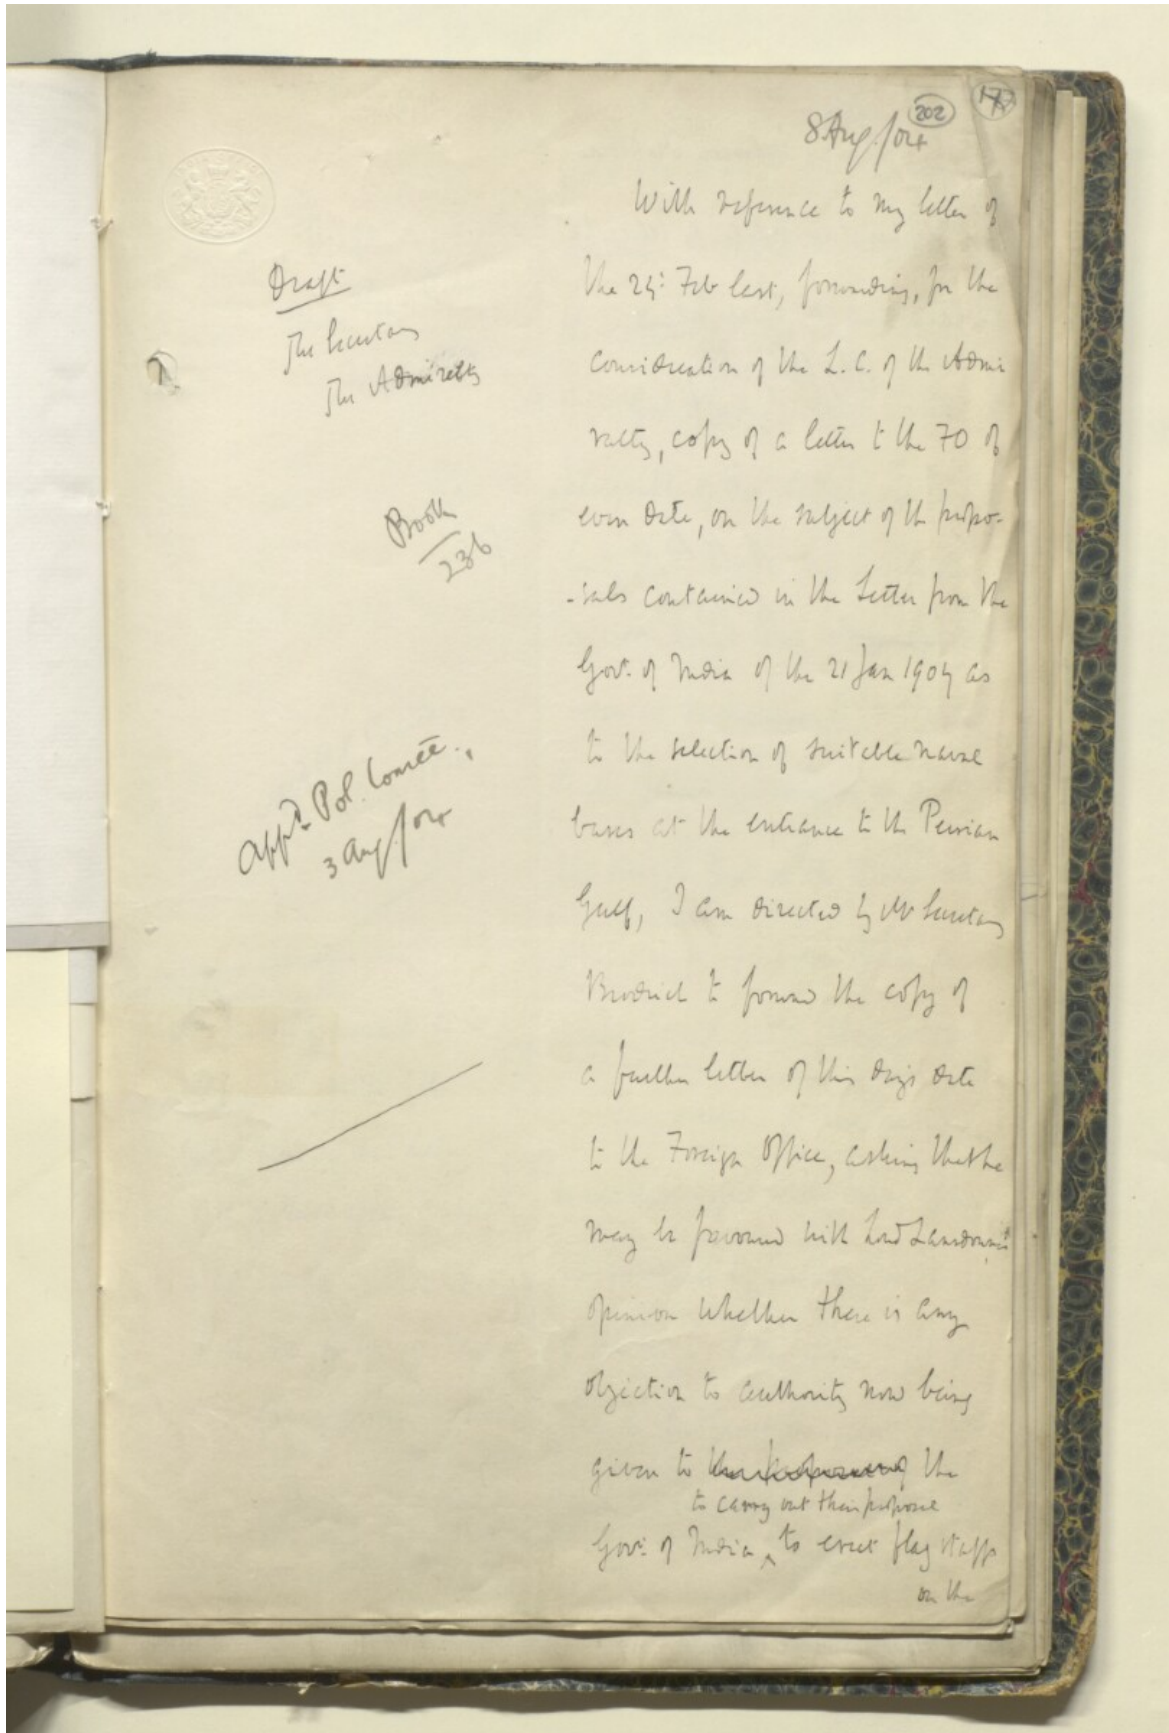 202
8 Aug/04
Draft
The Secretary
The Admiralty
Book
236
Appd. Pol. Comtee.,
3 Aug/04
With reference to my letter of
the 24: Feb last, forwarding, for the
consideration of the L. C. of the Admi
ralty, copy of a letter to the FO of
even date, on the subject of the propo-
-sals contained in the Letter from the
Govt. of India of the 21 Jan 1904 as
to the selection of suitable naval
bases at the entrance to the Persian
Gulf, I am directed by Mr Secretary
Brodrick to forward the copy of
a further letter of this day's date
to the Foreign Office, asking that he
may be favoured with Lord Lansdowne's
opinion whether there is any
objection to authority now being
given to the proposal of the
to carry out their proposal
Govt: of India ^ to erect flag staffs
on the